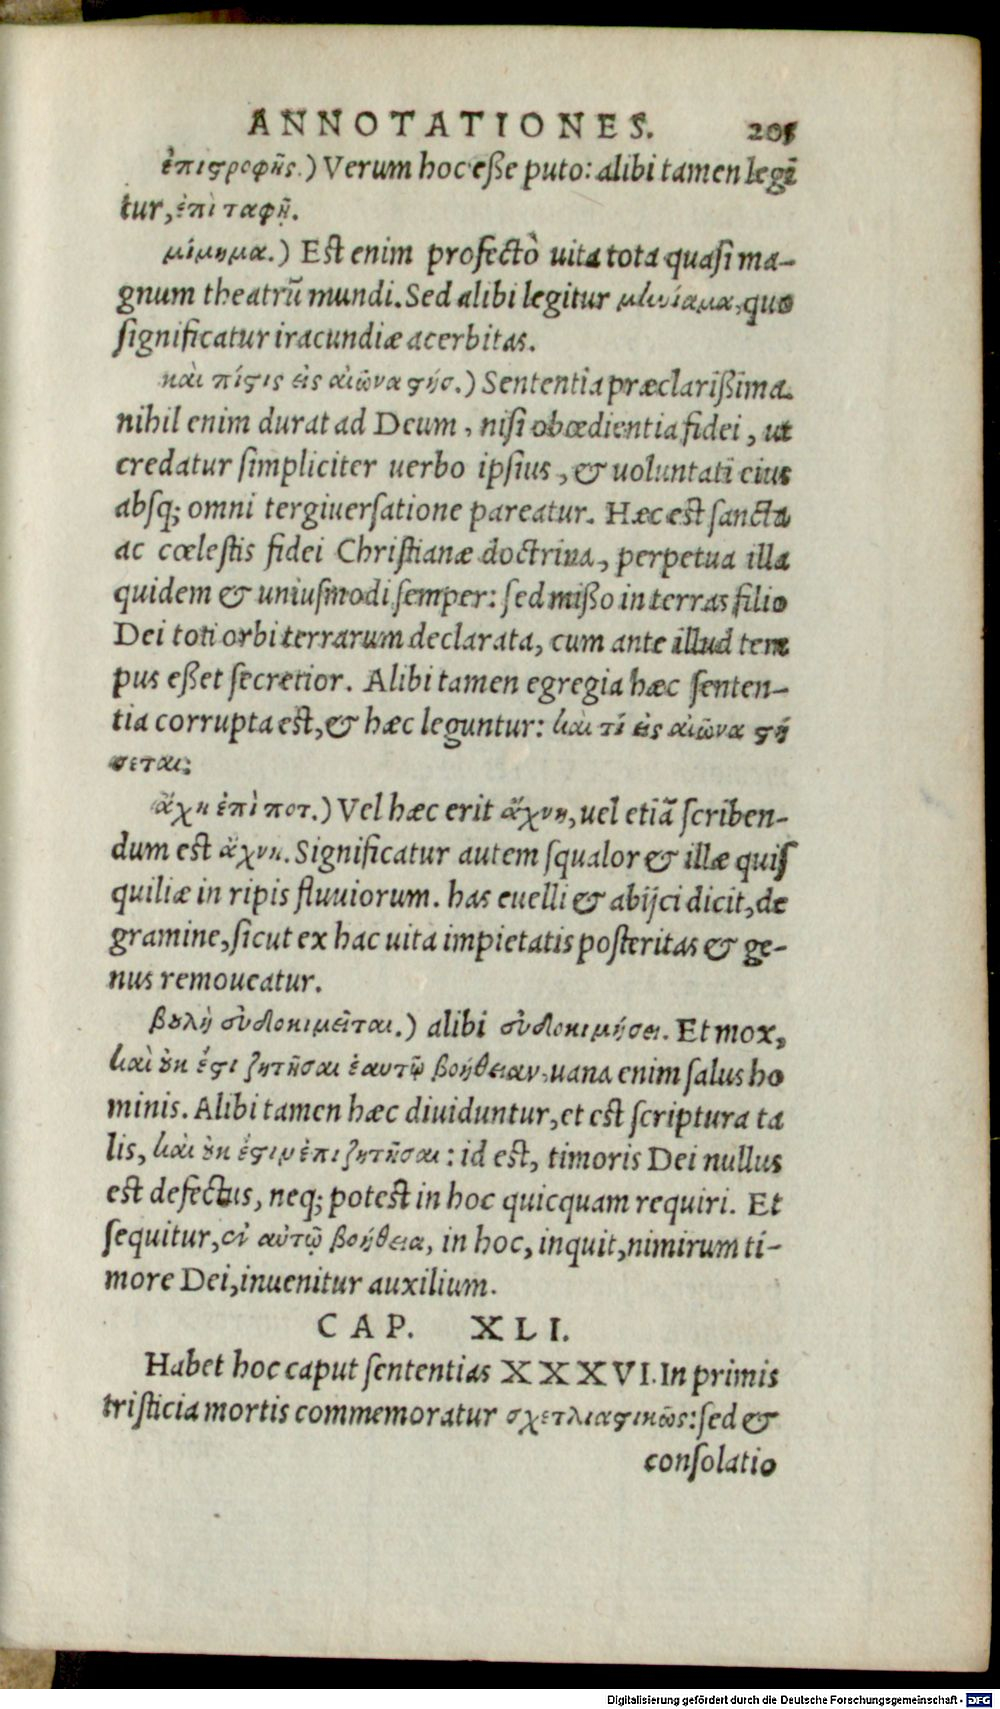 ANNOTATIONES. 205
ἐπιςροφῆς.) Verum hoc eſſe puto: alibi tamen legĩ
tur, ἐπὶ ταφῇ.
μίμημα.) Eſt enim profectò uita tota quaſi ma-
gnum theatrũ mundi. Sed alibi legitur μlωίαμα, quo
ſignificatur iracundiæ acerbitas.
καὶ πίςις εἰς αἰῶνα ςήσ.) Sententia præclariſſima.
nihil enim durat ad Deum, niſi obœdientia fidei, ut
credatur ſimpliciter uerbo ipſius, & uoluntati eius
abſq; omni tergiuerſatione pareatur. Hæc eſt ſancta
ac cœleſtis fidei Chriſtianæ doctrina, perpetua illa
quidem & uniuſmodi ſemper: ſed miſſo in terras filio
Dei toti orbi terrarum declarata, cum ante illud tem
pus eſſet ſecretior. Alibi tamen egregia hæc ſenten-
tia corrupta eſt, & hæc leguntur: καὶ τί εἰς αἰῶνα ςή
σεται;
ἄχη ἐπὶ ποτ.) Vel hæc erit ἄχνη, uel etiã ſcriben-
dum eſt ἄχνη. Significatur autem ſqualor & illæ quiſ
quiliæ in ripis fluuiorum. has euelli & abijci dicit, de
gramine, ſicut ex hac uita impietatis poſteritas & ge-
nus remoueatur.
βȣλὴ εὐδοκιμεῖται.) alibi εὐδοκιμήσει. Et mox,
καὶ ȣ̓κ ἔςι ζητῆσαι ἑαυτῷ βοήθειαν, uana enim ſalus ho
minis. Alibi tamen hæc diuiduntur, et eſt ſcriptura ta
lis, καὶ ȣ̓κ ἔςιν ἐπιζητῆσαι: id eſt, timoris Dei nullus
eſt defectus, neq; poteſt in hoc quicquam requiri. Et
ſequitur, ἐν αὐτῷ βοήθεια, in hoc, inquit, nimirum ti-
more Dei, inuenitur auxilium.
CAP. XLI.
Habet hoc caput ſententias XXXVI. In primis
triſticia mortis commemoratur σχετλιαςικῶς: ſed &
conſolatio
Digitalisierung gefördert durch die Deutsche Forschungsgemeinschaft - DFG